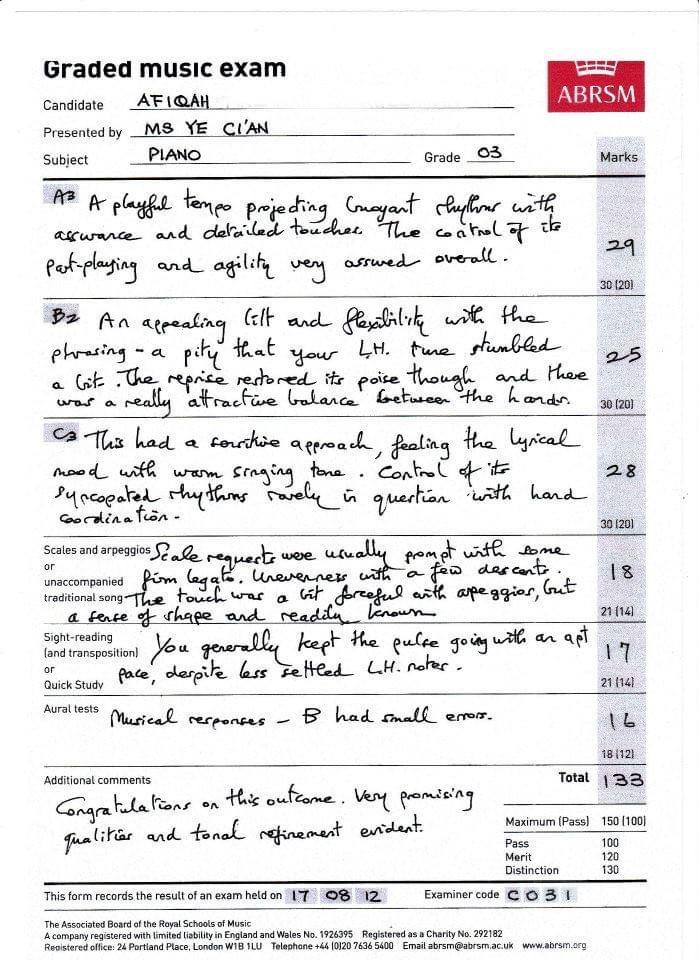 Graded music exam
ABRSM
Candidate AFIQAH
Presented by MS YE CI'AN
Subject PIANO Grade 03 Marks
A3 A playful tempo projecting buoyant rhythms with
assurance and detailed touches. The control of its
part-playing and agility very assured overall.
29
30 (20)
B2 An appealing lilt and flexibility with the
phrasing - a pity that your L.H. tune stumbled
a bit. The reprise restored its poise though and there
was a really attractive balance between the hands.
25
30 (20)
C3 This had a sensitive approach, feeling the lyrical
mood with warm singing tone. Control of its
syncopated rhythms rarely in question with hand
coordination.
28
30 (20)
Scales and arpeggios
or
unaccompanied
traditional song
Scale requests were usually prompt with some
firm legato. Unevenness with a few descents.
The touch was a bit forceful with arpeggios, but
a sense of shape and readily known
18
21 (14)
Sight-reading
(and transposition)
or
Quick Study
You generally kept the pulse going with an apt
pace, despite less settled L.H. notes.
17
21 (14)
Aural tests
Musical responses - B had small errors.
16
18 (12)
Additional comments
Congratulations on this outcome. Very promising
qualities and tonal refinement evident.
Total 133
Maximum (Pass) 150 (100)
Pass 100
Merit 120
Distinction 130
This form records the result of an exam held on 17 08 12 Examiner code C 0 3 1
The Associated Board of the Royal Schools of Music
A company registered with limited liability in England and Wales No. 1926395 Registered as a Charity No. 292182
Registered office: 24 Portland Place, London W1B 1LU Telephone +44 (0)20 7636 5400 Email abrsm@abrsm.ac.uk www.abrsm.org